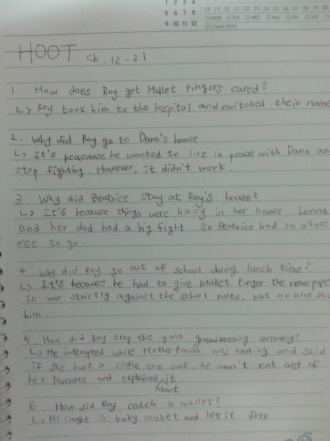 HOOT ch. 12-21
1. How does Roy get Mullet Fingers cured?
↳ Roy took him to the hospital and switched their name
2. Why did Roy go to Dana's house
↳ It's because he wanted to live in peace with Dana and
stop fighting. However, it didn't work.
3. Why did Beatrice stay at Roy's house?
↳ It's because things were hairy in her house. Lonna
and her dad had a big fight. So Beatrice had no where
else to go.
4. Why did Roy go out of school during lunch time?
↳ It's because he had to give Mullet Finger the
It was strictly against the school rules, but no one
him.
5. How did Roy stop the groundbreaking ceremony?
↳ He interrupted while Mother Paula was talking and said
if she hurt a single one owl, he won't eat any of
her Pancakes and explained it.
about
6. How did Roy catch a mullet?
↳ He caught a baby mullet and let it free